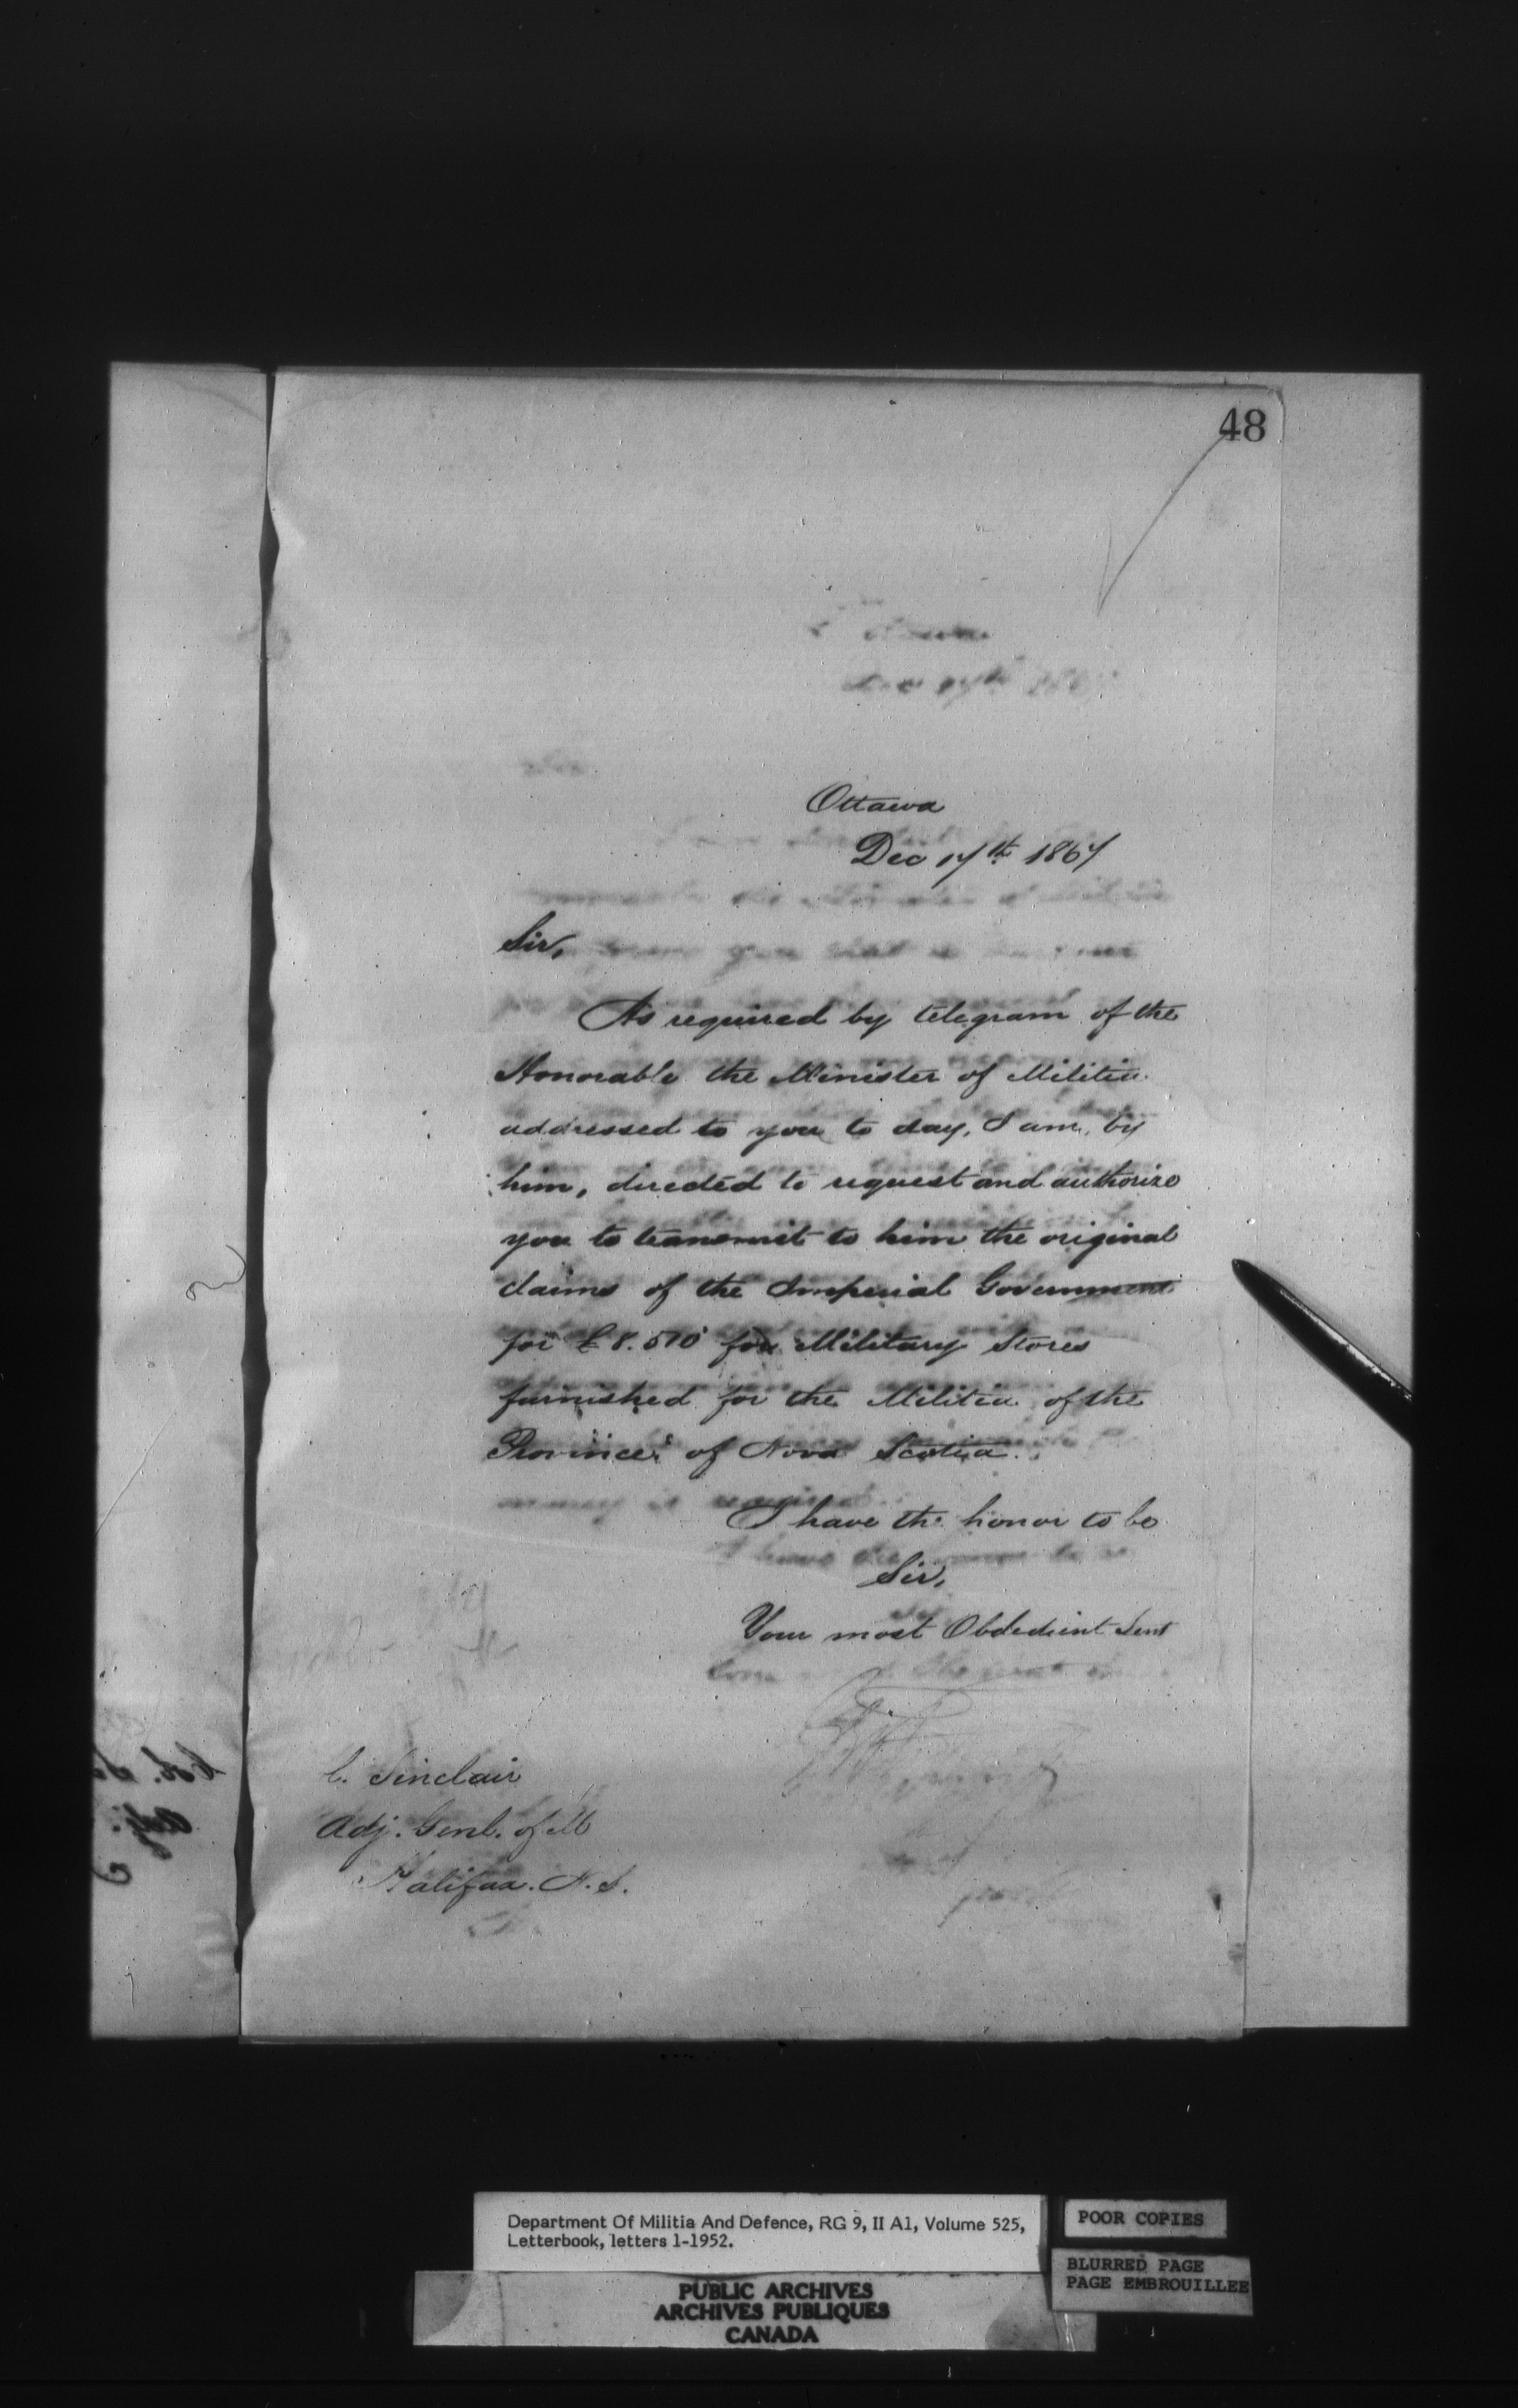 48
Ottawa
Dec 17th 1867
Sir,
As required by telegram of the
Honorable the Minister of Militia
addressed to you to day, I am, by
him, directed to request and authorize
you to transmit to him the original
claims of the Imperial Government
for £8.510 for Military Stores
furnished for the Militia of the
Province of Nova Scotia.
I have the honor to be
Sir,
Your most Obdedient Servt
C. Sinclair
Adj. Genl. of M
Halifax. N.S.
Department Of Militia And Defence, RG 9, II A1, Volume 525,
Letterbook, letters 1-1952.
POOR COPIES
BLURRED PAGE
PAGE EMBROUILLEE
PUBLIC ARCHIVES
ARCHIVES PUBLIQUES
CANADA